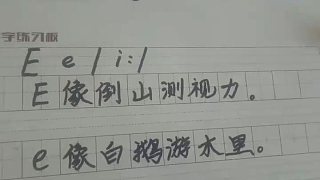 字练习板
E e / i:/
E 像倒山测视力。
e 像白鹅游水里。